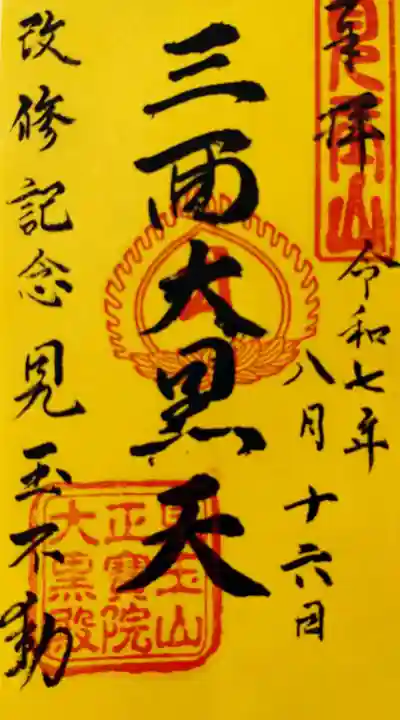 奉拝
令和七年
八月十六日
三面大黒天
改修記念 児玉不動
児玉山
正寶院
大黒殿